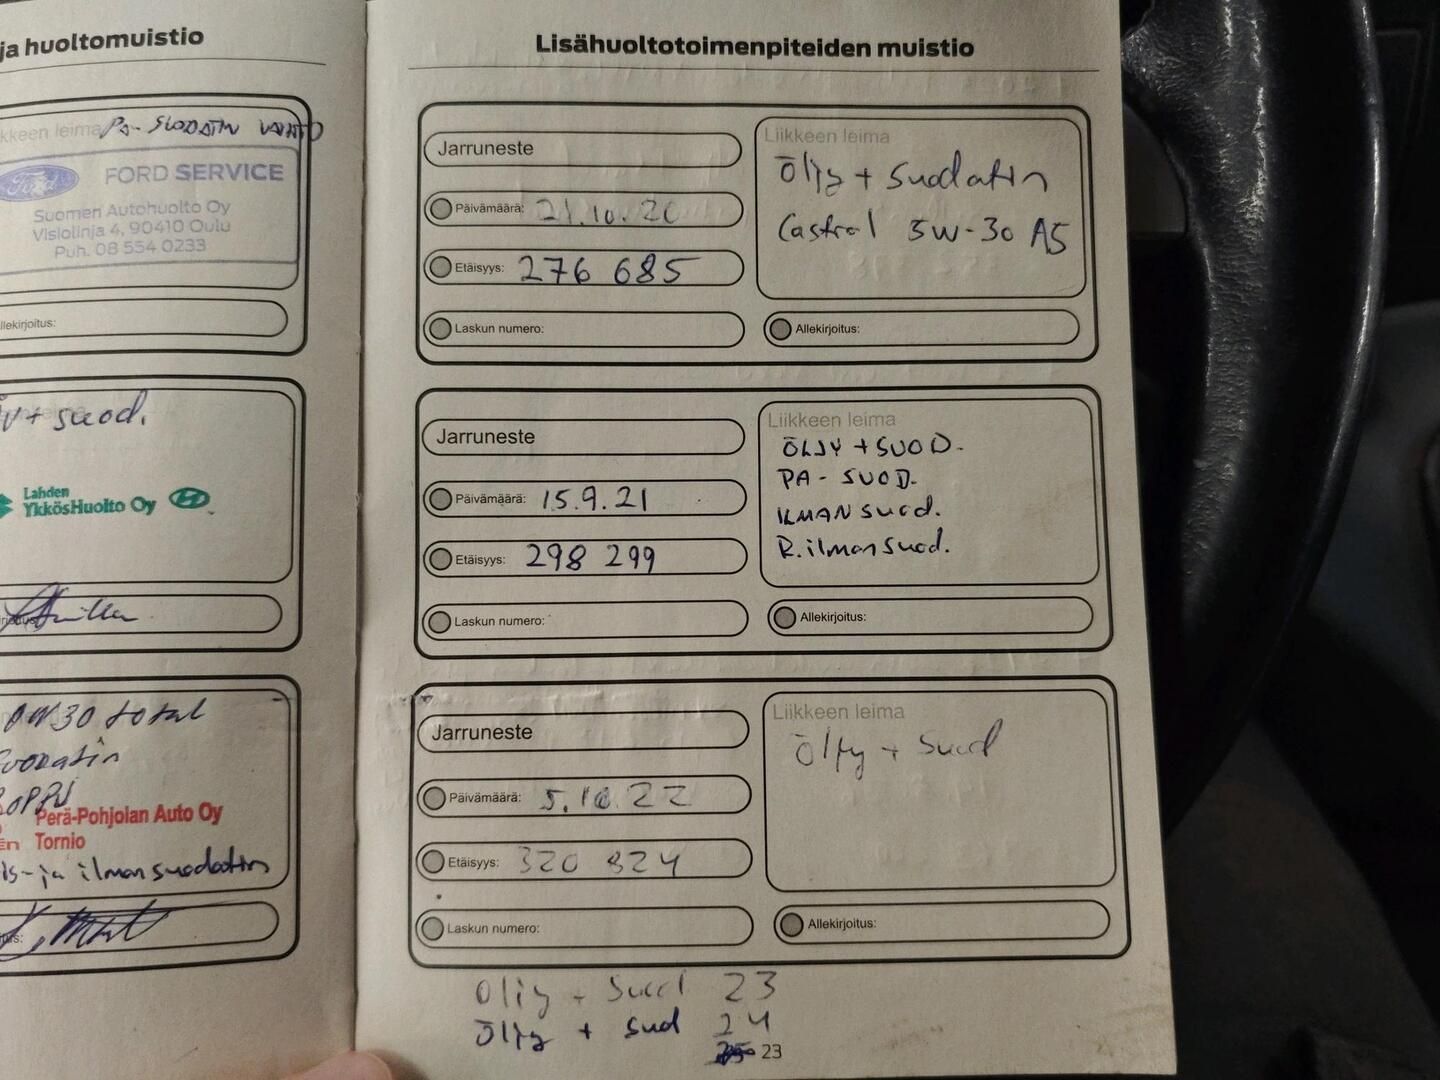 ja huoltomuistio
kkeen leima PA-SUODATIN VAIHTO
Ford
FORD SERVICE
Suomen Autohuolto Oy
Visiolinja 4, 90410 Oulu
Puh. 08 554 0233
llekirjoitus:
+ suod.
Lahden
YkkösHuolto Oy
W30 total
Perä-Pohjolan Auto Oy
Tornio
is- ja ilmansuodatin
Lisähuoltotoimenpiteiden muistio
Jarruneste
Päivämäärä: 21.10.20
Etäisyys: 276 685
Laskun numero:
Liikkeen leima
Öljy + suodatin
Castrol 5W-30 A5
Allekirjoitus:
Jarruneste
Päivämäärä: 15.9.21
Etäisyys: 298 299
Laskun numero:
Liikkeen leima
ÖLJY + SUOD.
PA-SUOD.
ILMANsuod.
R.ilmansuod.
Allekirjoitus:
Jarruneste
Päivämäärä: 5.10.22
Etäisyys: 320 824
Laskun numero:
Liikkeen leima
Öljy + suod
Allekirjoitus:
Öljy + suod 23
Öljy + sud 24
23